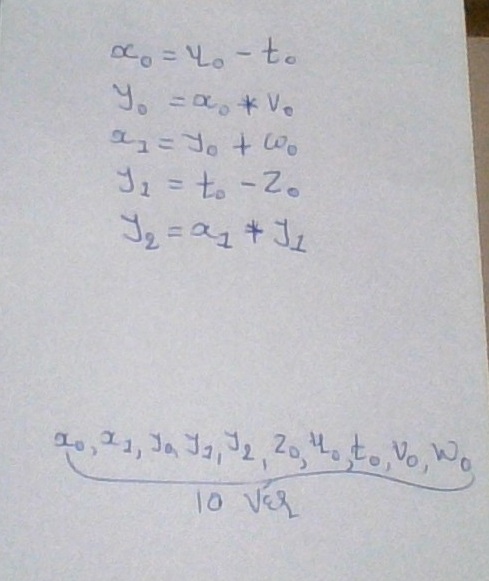 x₀ = u₀ - t₀
y₀ = x₀ * v₀
x₁ = y₀ + w₀
y₁ = t₀ - z₀
y₂ = x₁ * y₁
x₀, x₁, y₀, y₁, y₂, z₀, u₀, t₀, v₀, w₀
10 Var